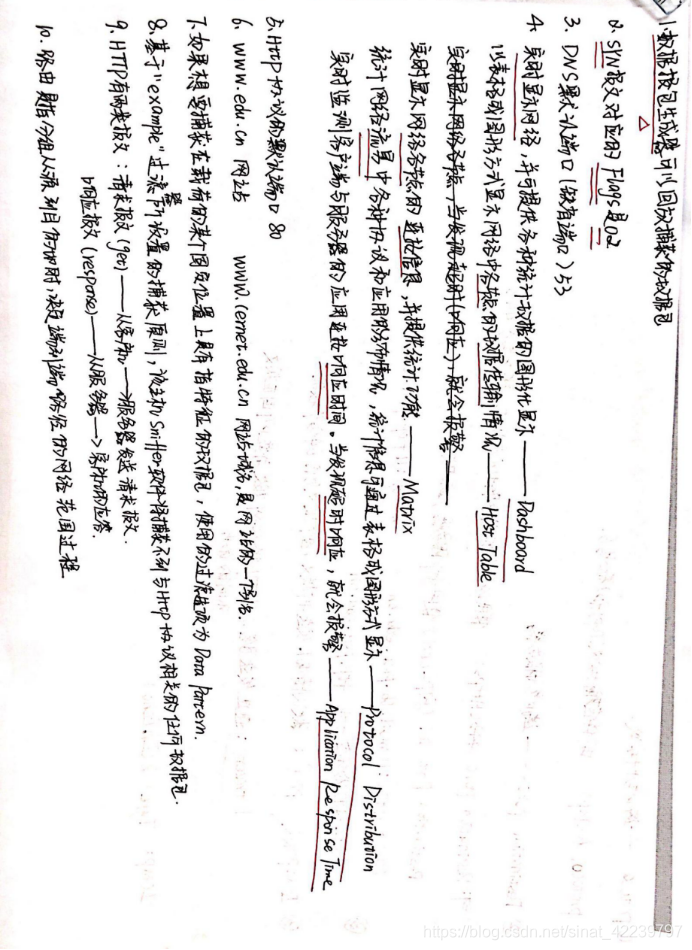 1.数据报包生成器可以回放捕获的数据包
2. SYN报文对应的Flags是02
3. DNS默认端口(缺省端口)53
4. 实时显示网络,并可提供各种统计数据的图形化显示——Dashboard
以表格或图形方式显示网络中各节点的数据传输情况——Host Table
实时显示网络各节点,当发现超时(响应),就会报警——
实时显示网络各节点的连接信息,并提供统计功能——Matrix
统计网络流量中各种协议和应用的分布情况,统计信息可通过表格或图形方式显示——Protocol Distribution
实时监测客户端与服务器的应用连接响应时间。当发现超时响应,就会报警——Application Response Time
5.Http协议的默认端口80
6. www.edu.cn 网站 www.cernet.edu.cn 网站域名,是网站的一个别名.
7.如果想要捕获在载荷的某个固定位置上具有指特征的数据包,使用的过滤选项为 Data Parcern.
8.基于"example"过滤器所放置的捕获原则,该主机Sniffer软件将捕获不到与Http协议相关的任何数据包.
9. HTTP有两类报文:请求报文(get)——从客户机——>服务器发送请求报文.
响应报文(response)——从服务器——>客户机的应答.
10. 路由是指分组从源到目的地时,决定端到端路径的网络范围过程
https://blog.csdn.net/sinat_42239797